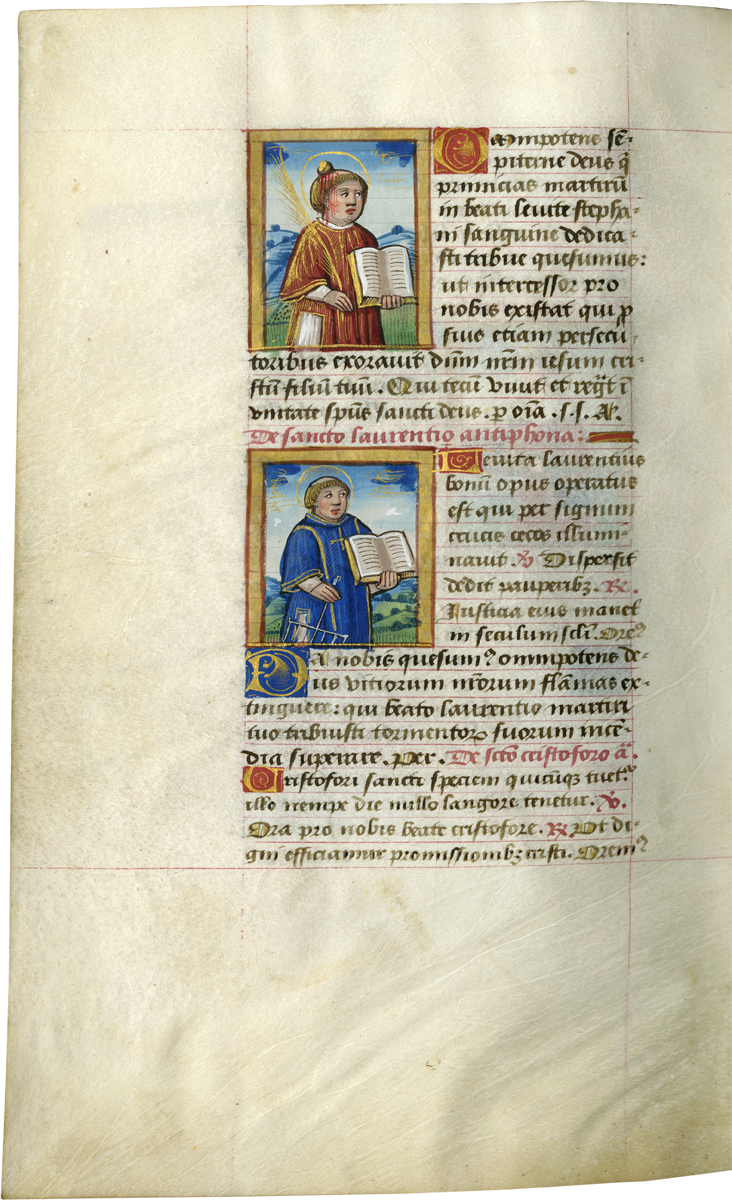 Omnipotens se͂-
piterne deus q̇
primicias martirū
in beati levite stepha-
ni sanguine dedica-
sti tribue quesumus:
ut intercessor pro
nobis existat qui ꝓ
suis etiam persecu
toribus exoravit dūm nr̄m iesum cri-
stū filiū tuū. Qui tecū vivit et regt̄ ī
unitate spūs sancti deus. p oīa .s.s. A.
De sancto laurentio antiphona:
Levita laurentius
bonū opus operatus
est qui per signum
crucis cecos illumi-
navit. ℣ Dispersit
dedit pauperibꝫ. ℟.
Iusticia eius manet
in seculum scl̄i. Ore⁹
Da nobis quesum⁹ omnipotens de-
us vitiorum nr̄orum flāmas ex-
tinguere: qui beato laurentio martiri
tuo tribuisti tormentoꝝ suorum incē-
dia superare. Per. De sct̄o cristoforo ā.
Cristofori sancti speciem quicūqꝫ tuet᷑
illo nempe die nullo langore tenetur. ℣.
Ora pro nobis beate cristofore. ℟ Ut di-
gni efficiamur promissionibꝫ cristi. Orem⁹